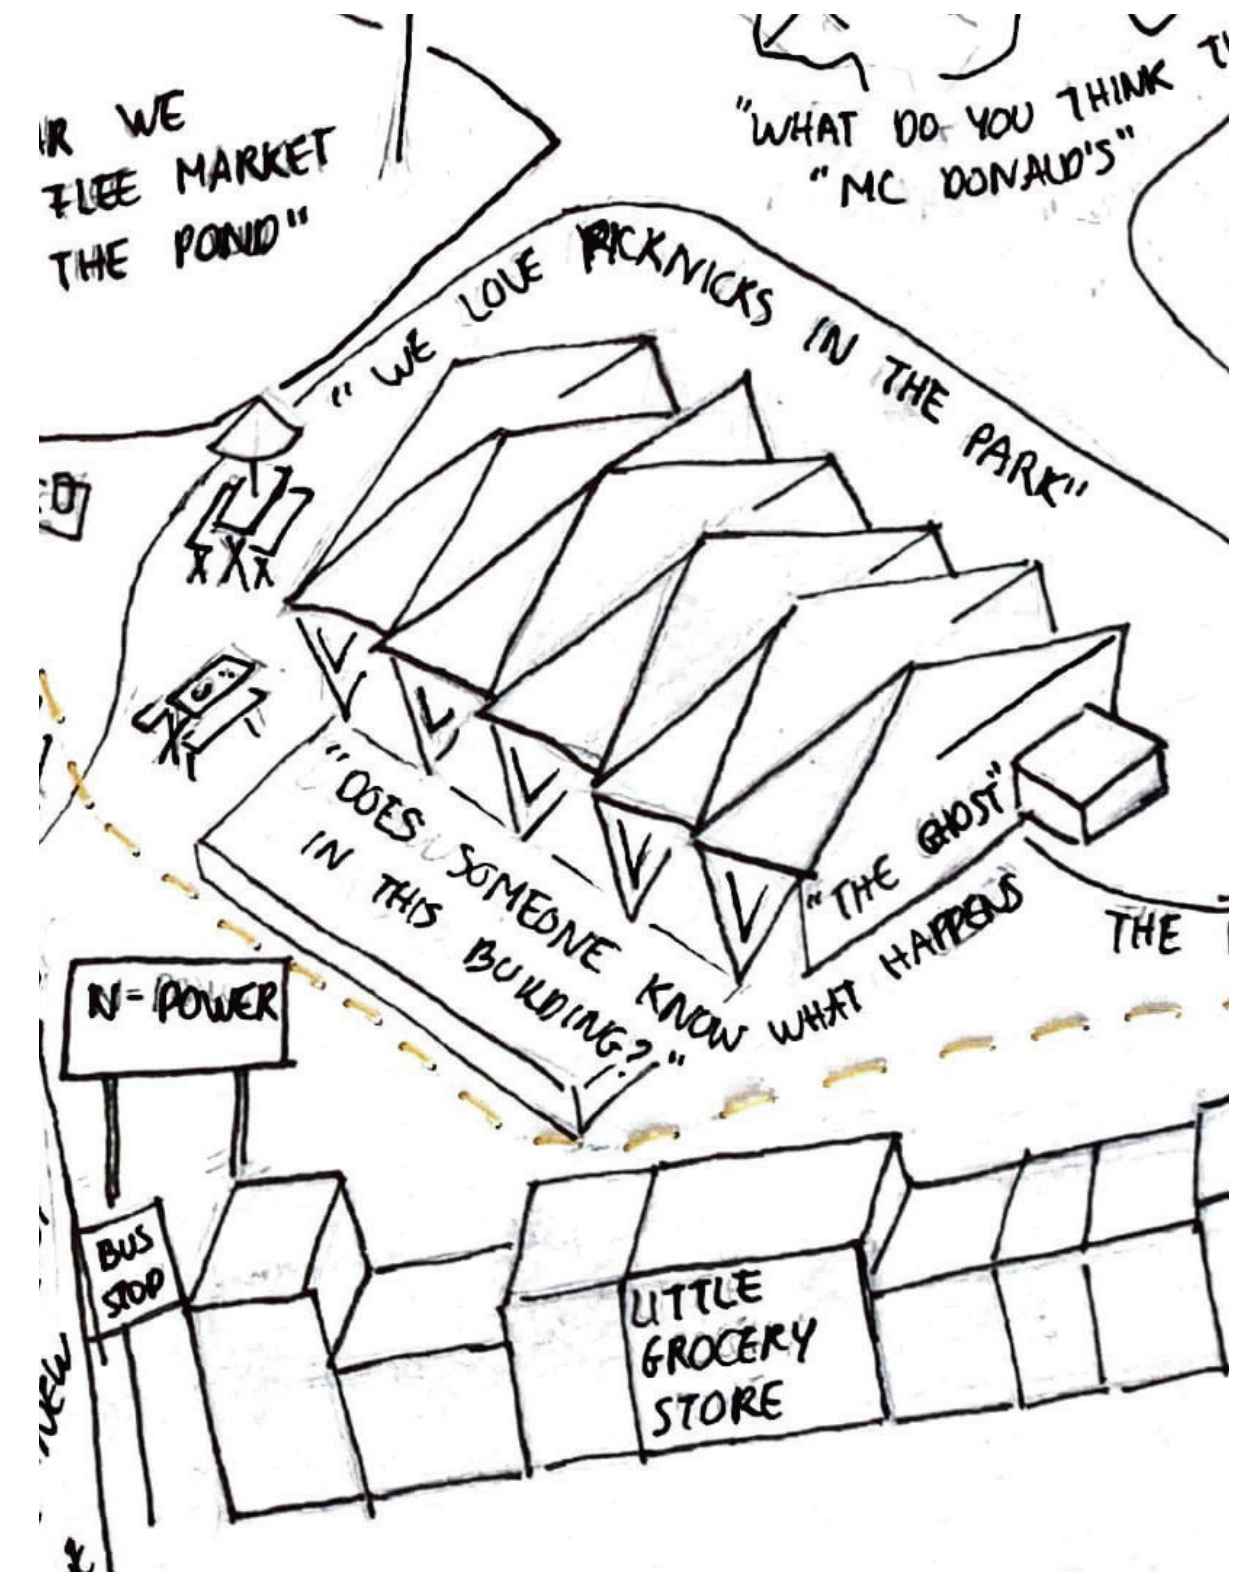 WE
FLEE MARKET
THE POND"
"WHAT DO YOU THINK
"MC DONALD'S"
"WE LOVE PICKNICKS IN THE PARK"
"DOES SOMEONE KNOW WHAT HAPPENS
IN THIS
BUILDING?"
"THE GHOST"
THE
N-POWER
BUS
STOP
LITTLE
GROCERY
STORE